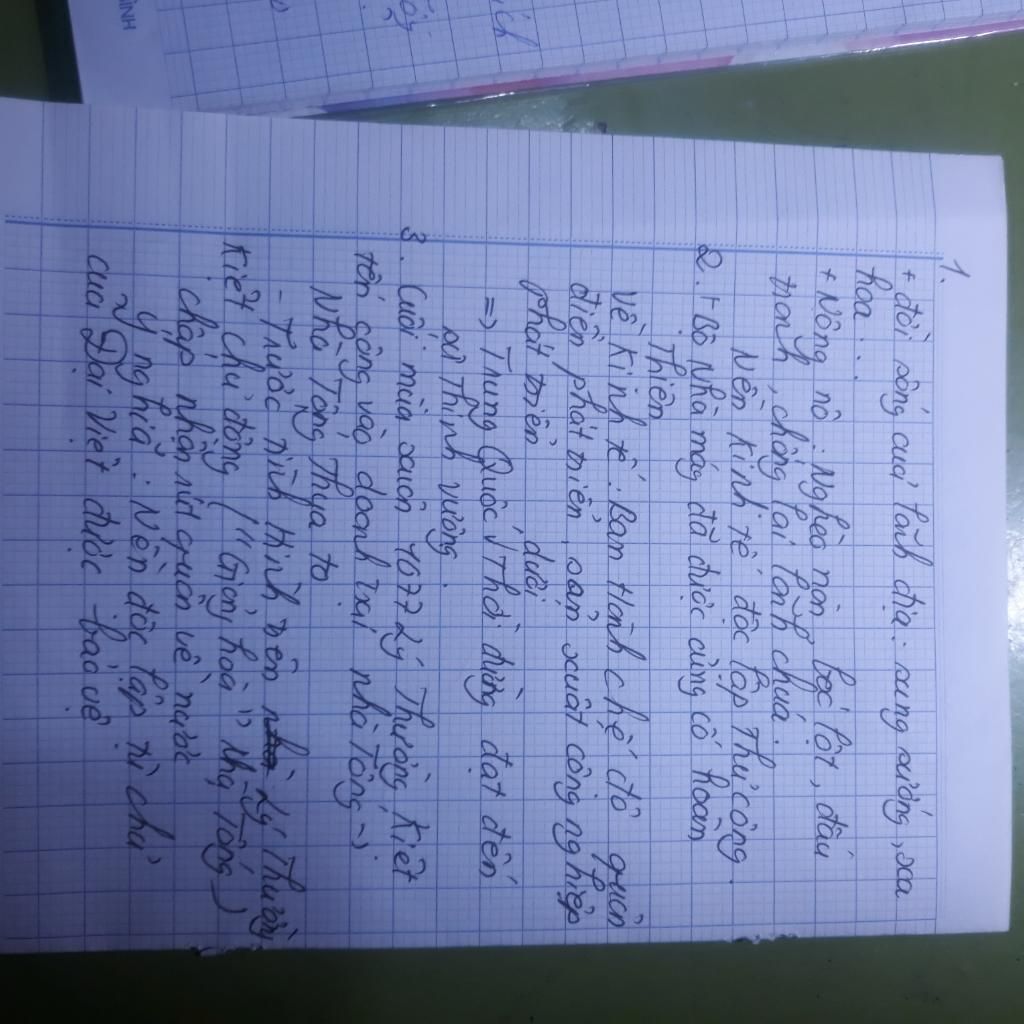 1.
+ đời sống của lãnh địa: sung sướng, xa
hoa...
+ Nông nô: Nghèo nàn bóc lột, đấu
tranh, chống lại lãnh chúa
Nền kinh tế độc lập Thủ công.
2. + Bộ Nhà máy đã được củng cố hoàn
Thiện
Về kinh tế: Ban Hành chế độ quân
điền phát triển, sản xuất công nghiệp
phát triển
=> Trung Quốc dưới Thời đường đạt đến
sự Thịnh vượng.
3. Cuối mùa xuân 1077 Lý Thường Kiệt
tấn công vào doanh trại nhà Tống ->
Nhà Tống Thua to
- Trước tình Hình trên Lý Thường
Kiệt chủ động ("Giảng hoà" Nhà Tống)
chấp nhận rút quân về nước
Ý nghĩa: Nền độc lập tự chủ
của Đại Việt được bảo vệ